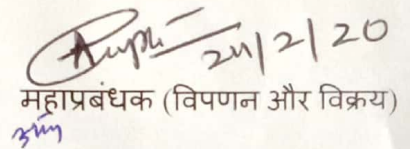 24/2/20
महाप्रबंधक (विपणन और विक्रय)